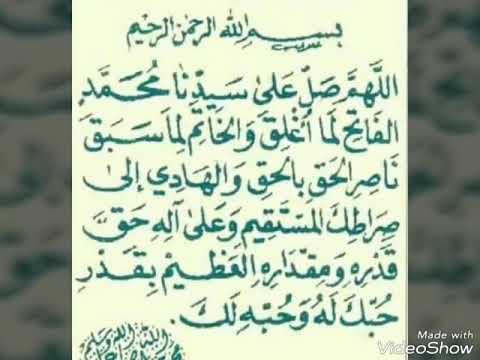 بسم الله الرحمن الرحيم
اللَّهُمَّ صَلِّ عَلَى سَيِّدِنَا مُحَمَّدٍ
الفَاتِحِ لِمَا أُغْلِقَ وَالخَاتِمِ لِمَا سَبَقَ
نَاصِرِ الحَقِّ بِالحَقِّ وَالهَادِي إِلَى
صِرَاطِكَ المُسْتَقِيمِ وَعَلَى آلِهِ حَقَّ
قَدْرِهِ وَمِقْدَارِهِ العَظِيمِ بِقَدْرِ
حُبِّكَ لَهُ وَحُبِّهِ لَكَ.
Made with
VideoShow